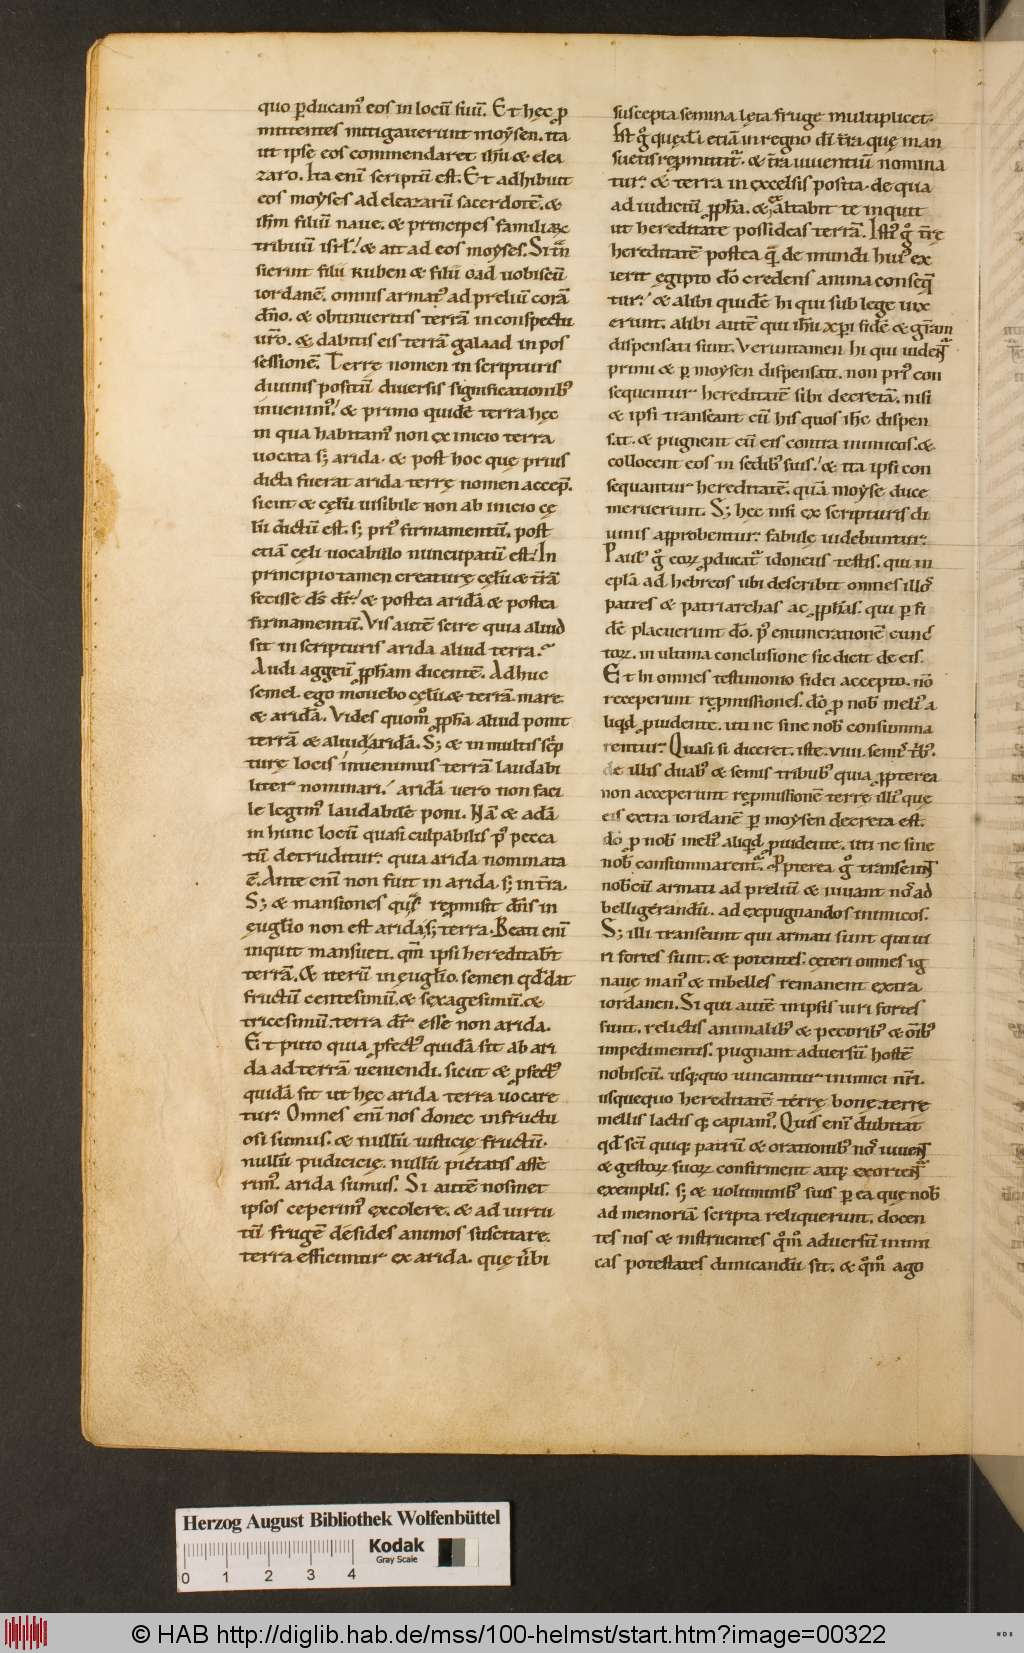 quo ꝑducamꝰ eos in locū suū. Et hęc ꝓ
mittentes mitigauerunt moẏsen. ita
ut ipse eos commendaret ihū & elea
zaro. Ita enī scriptū est. Et adhibuit
eos moẏses ad eleazarū sacerdotē. &
ihm̄ filiū naue. & principes familiaꝝ
tribuū isrl̄. & ait ad eos moẏses. Si trān
sierint filii ruben & filii Gad uobiscū
iordanē. omnis armatꝰ ad preliū corā
dn̄o. & obtinueritis terrā in conspectu
uro̅. & dabitis eis terrā galaad in pos
sessionē. Terrę nomen in scripturis
diuinis positū diuersis significationibꝰ
inuenimꝰ. & primo quidē terra hęc
in qua habitamꝰ non ex inicio terra
uocata s; arida. & post hoc quę prius
dicta fuerat arida terrę nomen accep̄.
sicut & cęlū uisibile non ab inicio cę
lū dictū est. s; priꝰ firmamentū. post
etiā cęli uocabulo nuncupatū est. In
principio tamen creaturę cęlū & trā
fecisse ds̄ dr̄. & postea aridā & postea
firmamentū. Vis autē scire quia aliud
sit in scripturis arida aliud terra.
Audi aggeū ꝓph̄am dicentē. Adhuc
semel. ego mouebo cęlū. & terrā. mare
& aridā. Vides quom̊ ꝓph̄a aliud ponit
terrā & aliud aridā. S; & in multis scrip̄
turę locis inuenimus terrā laudabi
liter nominari. aridā uero non faci
le legimꝰ laudabilē poni. Nā & adā
in hunc locū quasi culpabilis p̱ pecca
tū detruditur. quia arida nominata
ē. Ante enī non fuit in arida. s; in tra̅.
S; & mansiones quas repromisit dn̄s in
euglio̅ non est arida s; terra. Beati enī
inquit mansueti. qm̄ ipsi hereditabt̄
terrā. & iterū in euglio̅. semen qd̄ dat
fructū centesimū. & sexagesimū. &
tricesimū. terra dr̄ esse non arida.
Et puto quia ꝓfectꝰ quidā sit ab ari
da ad terrā ueniendi. sicut & ꝓfectꝰ
quidā sit ut hęc arida terra uocare
tur. Omnes enī nos donec infructu
osi sumus. & nullū iusticię fructū.
nullū pudicicię. nullū pietatis affe
rimꝰ. arida sumus. Si autē nosmet
ipsos ceperimꝰ excolere. & ad uirtu
tū frugē desides animos suscitare.
terra efficimur ex arida. quę ubi
suscepta semina lęta fruge multiplicet.
Est gͦ quędā etiā in regno dī tra̅. quę man
suetis repromittit̄. & tra̅ uiuentiū nomina
tur. & terra in excelsis posita. de qua
ad iudiciū ꝓph̄a. & exaltabit te inquit
ut hereditate possideas terrā. Istiꝰ gͦ trę̄
hereditatē postea quā de mundi huiꝰ ex
ierit egipto dō credens anima conseq̄
tur. & alibi quidē hi qui sub lege uix
erunt. alibi autē qui ihū xp̄i fidē & grām
dispensati sunt. Veruntamen hi qui uidentur̄
primi & ꝑ moysen dispensati. non priꝰ con
sequentur hereditatē sibi decretā. nisi
& ipsi transeant cū his quos ihc̄ dispen
sat. & pugnent cū eis contra inimicos. &
collocent eos in sedibꝰ suis. & ita ipsi con
sequantur hereditatē. quā moẏse duce
meruerunt. S; hęc nisi ex scripturis di
uinis approbentur. fabulę uidebuntur.
Paulꝰ gͦ eoꝝ ꝓducat̄ idoneus testis. qui in
epla̅ ad hebreos ubi describit omnes illos
patres & patriarchas ac ꝓph̄as. qui ꝑ fi
dē placuerunt dō. p̱ enumerationē cunc
toꝝ. in ultima conclusione sic dicit de eis.
Et hi omnes testimonio fidei accepto. nō
receperunt repromissiones. dō ꝓ nobꝰ meliꝰ a
liqd̄ ꝓuidente. uti ne sine nobꝰ consumma
rentur. Quasi si diceret. iste. viiii. semiꝰ trib̄ꝰ.
de illis duabꝰ & semis tribubꝰ quia ꝓpterea
non acceperunt repromissionē terrę illiꝰ quę
eis extra iordanē ꝑ moẏsen decreta est.
dō ꝓ nobꝰ meliꝰ aliqd̄ ꝓuidente. uti ne sine
nobꝰ consummarent̄. Ꝓpterea gͦ transeunt
nobꝰcū armati ad preliū & iuuant nos ad
belligerandū. ad expugnandos inimicos.
S; illi transeunt qui armati sunt qui ui
ri fortes sunt. & potentes. ceteri omnes ig
naue manꝰ & inbelles remanent extra
iordanen. Si qui autē in ipsis uiri fortes
sunt. relictis animalibꝰ & pecoribꝰ & oīb̄ꝰ
impedimentis. pugnant aduersū hostē
nobiscū. usq;quo uincantur inimici nr̄i.
usquequo hereditatē terrę bonę. terrę
mellis lactis q; capiamꝰ. Quis enī dubitat
qd̄ scī quiq; patrū & orationibꝰ nos iuuent
& gestoꝝ suoꝝ confirment atq; exortent̄
exemplis. s; & uoluminibꝰ suis ꝑ ea que nobꝰ
ad memoriā scripta reliquerunt. docen
tes nos & instruentes qm̊ aduersū inimi
cas potestates dimicandū sit. & qm̊ ago
Herzog August Bibliothek Wolfenbüttel
Kodak
Gray Scale
0 1 2 3 4
© HAB http://diglib.hab.de/mss/100-helmst/start.htm?image=00322